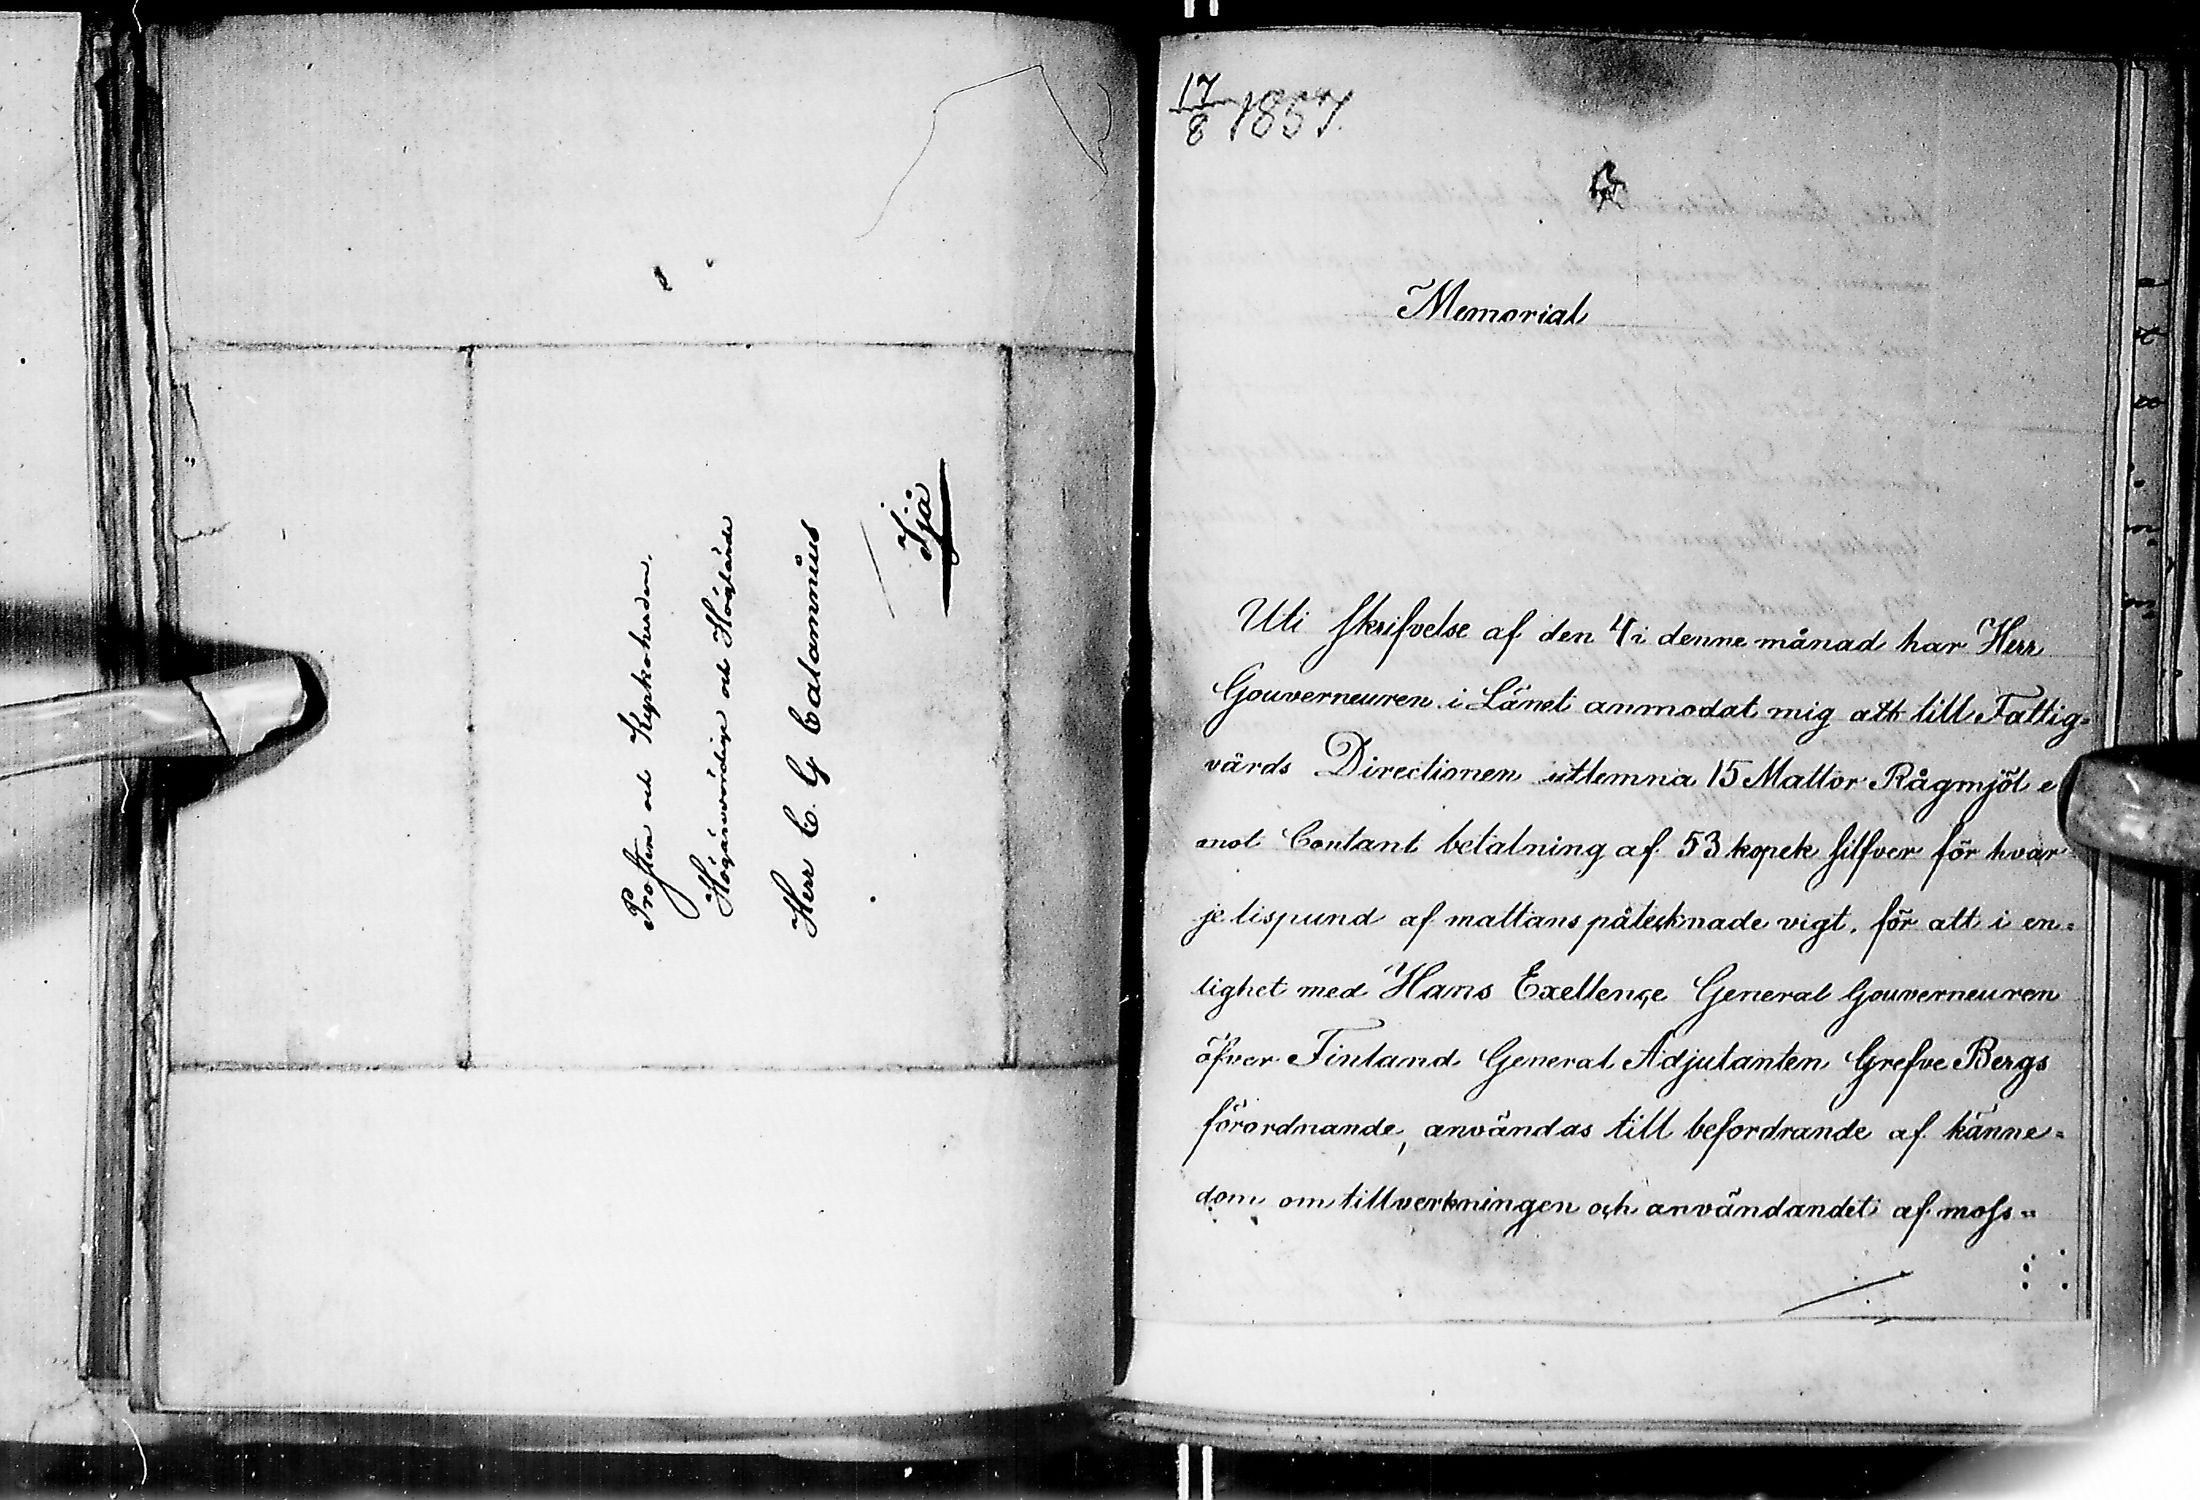 Prosten och Kyrkoherden
Högärevördige och Höglärde
Herr C. G Calamnius
Ijå
17/8 1857.
Memorial
Uti skrifvelse af den 4 i denne månad har Herr
Gouverneuren i Länet anmodat mig att till Fattig=
vårds Directionen utlemna 15 Mattor Rågmjöl e
mot Contant betalning af 53 kopek silfver för hvar
je lispund af mattans påtecknade vigt, för att i en=
lighet med Hans Exellençe General Gouverneuren
öfver Finland General Adjutanten Grefve Bergs
förordnande, användas till befordrande af känne=
dom om tillverkningen och användandet af moss=